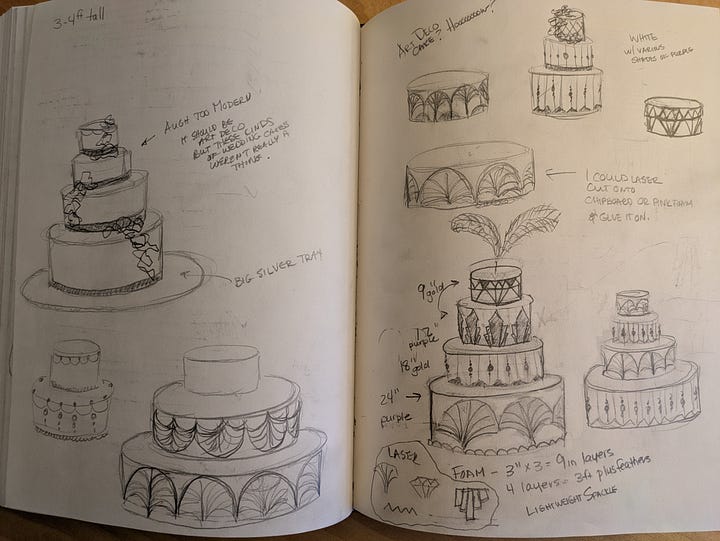 3-4ft tall
AUGH TOO MODERN
IT SHOULD BE
ART DECO
BUT THESE KINDS
OF WEDDING CAKES
WEREN'T REALLY A
THING.
BIG SILVER TRAY
ART DECO
CAKE? HOOOOOOW?
WHITE
W/ VARIOUS
SHADES OF PURPLE
I COULD LASER
CUT ONTO
CHIPBOARD OR PINK FOAM
& GLUE IT ON.
9" gold
purple
18" gold
24"
purple
LASER
FOAM - 3" x 3 = 9 in layers
4 layers = 3ft plus feathers
LIGHTWEIGHT SPACKLE